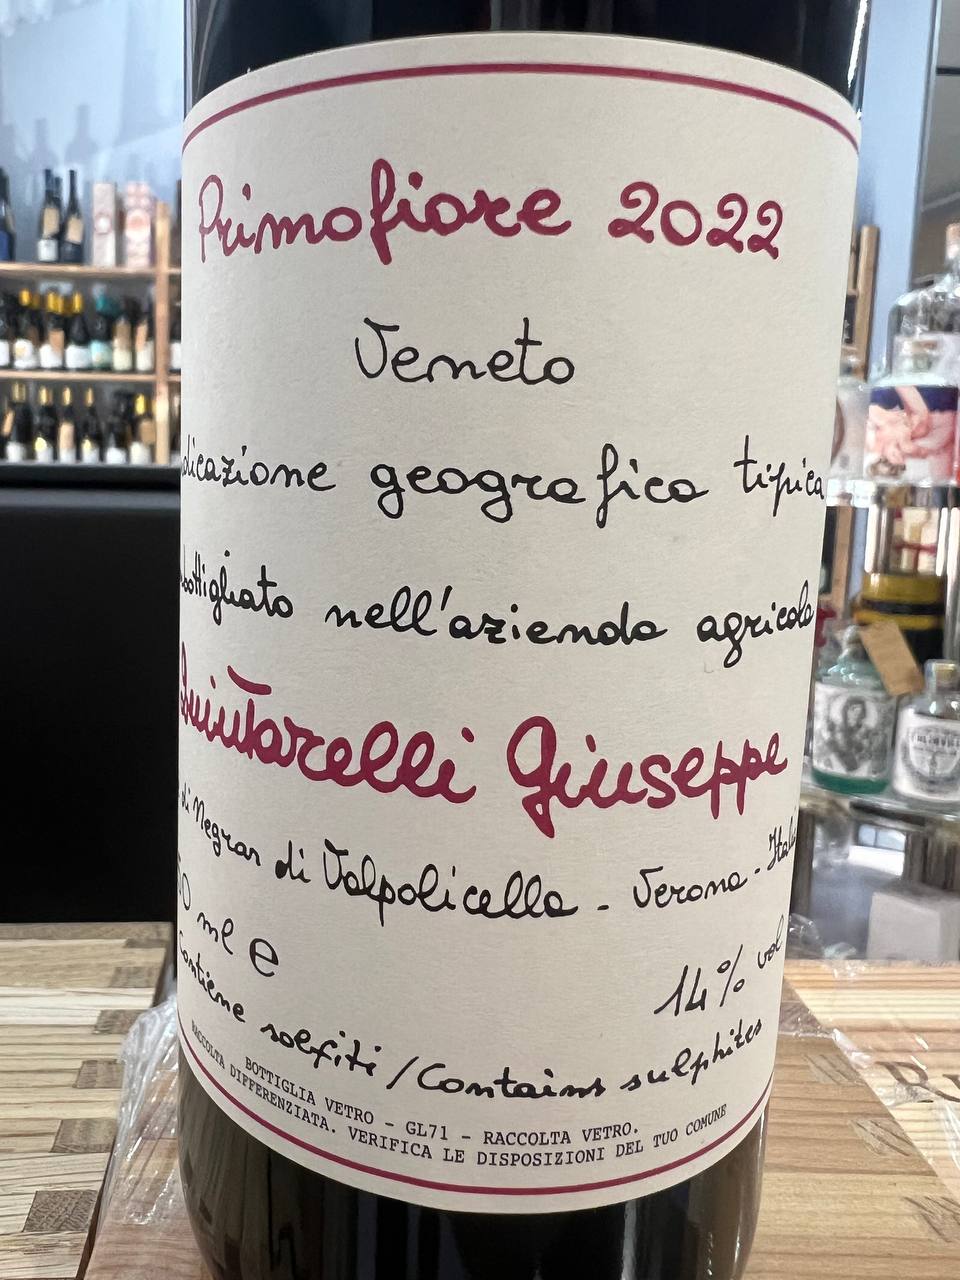 Primofiore 2022
Veneto
dicazione geografica tipica
bottigliato nell'azienda agricola
Quintarelli Giuseppe
di Negrar di Valpolicella - Verona - Italia
50 ml e
14% vol
Contiene solfiti / Contains sulphites
BOTTIGLIA VETRO - GL71 - RACCOLTA VETRO.
RACCOLTA DIFFERENZIATA. VERIFICA LE DISPOSIZIONI DEL TUO COMUNE